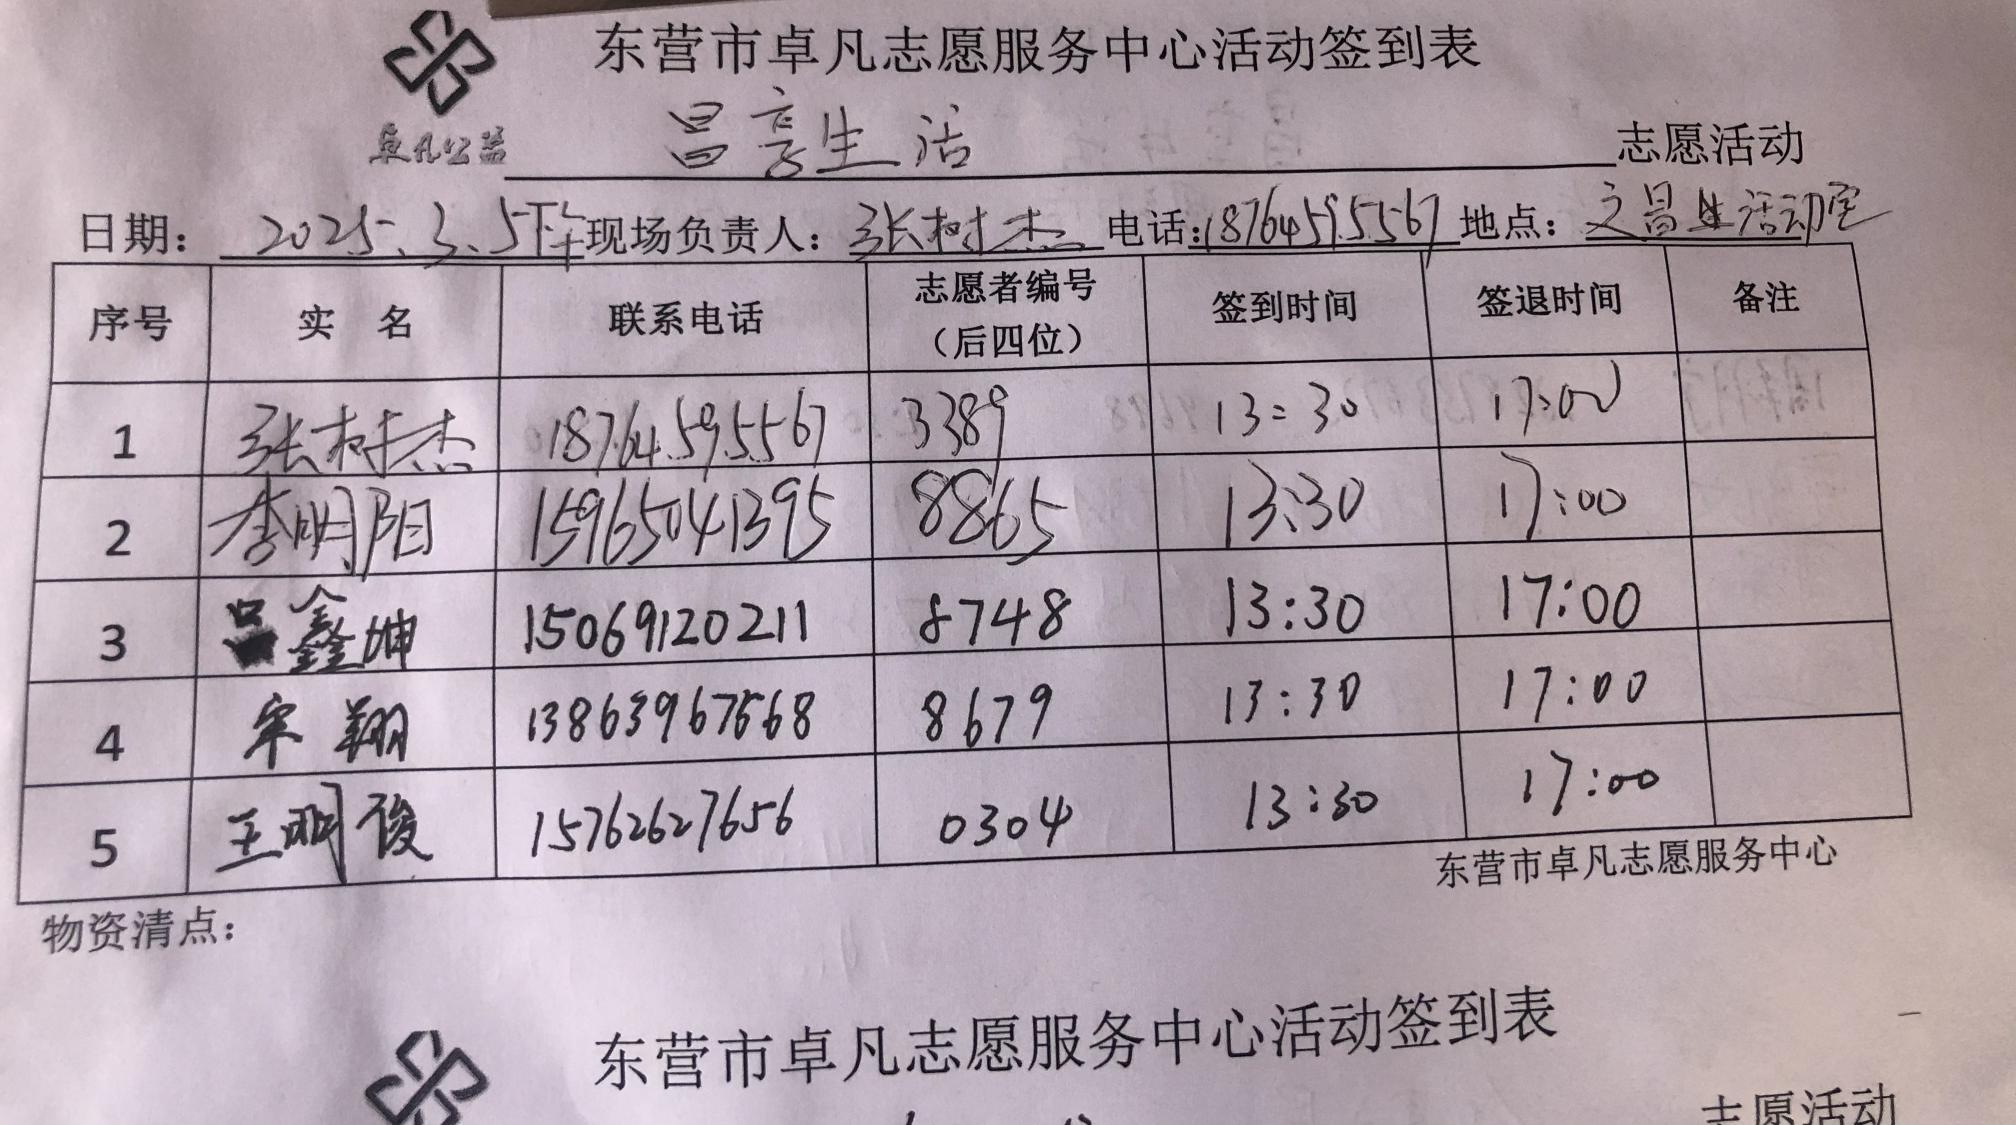 东营市卓凡志愿服务中心活动签到表
卓凡公益
昌享生活 志愿活动
日期：2025.3.5下午 现场负责人：张树杰 电话：18764595567 地点：文昌生活动室
序号 实 名 联系电话 志愿者编号（后四位） 签到时间 签退时间 备注
1 张树杰 18764595567 3389 13:30 17:00
2 李明阳 15965041395 8865 13:30 17:00
3 吕鑫坤 15069120211 8748 13:30 17:00
4 宋翔 13863967568 8679 13:30 17:00
5 王明俊 15762627656 0304 13:30 17:00
东营市卓凡志愿服务中心
物资清点：
东营市卓凡志愿服务中心活动签到表
志愿活动